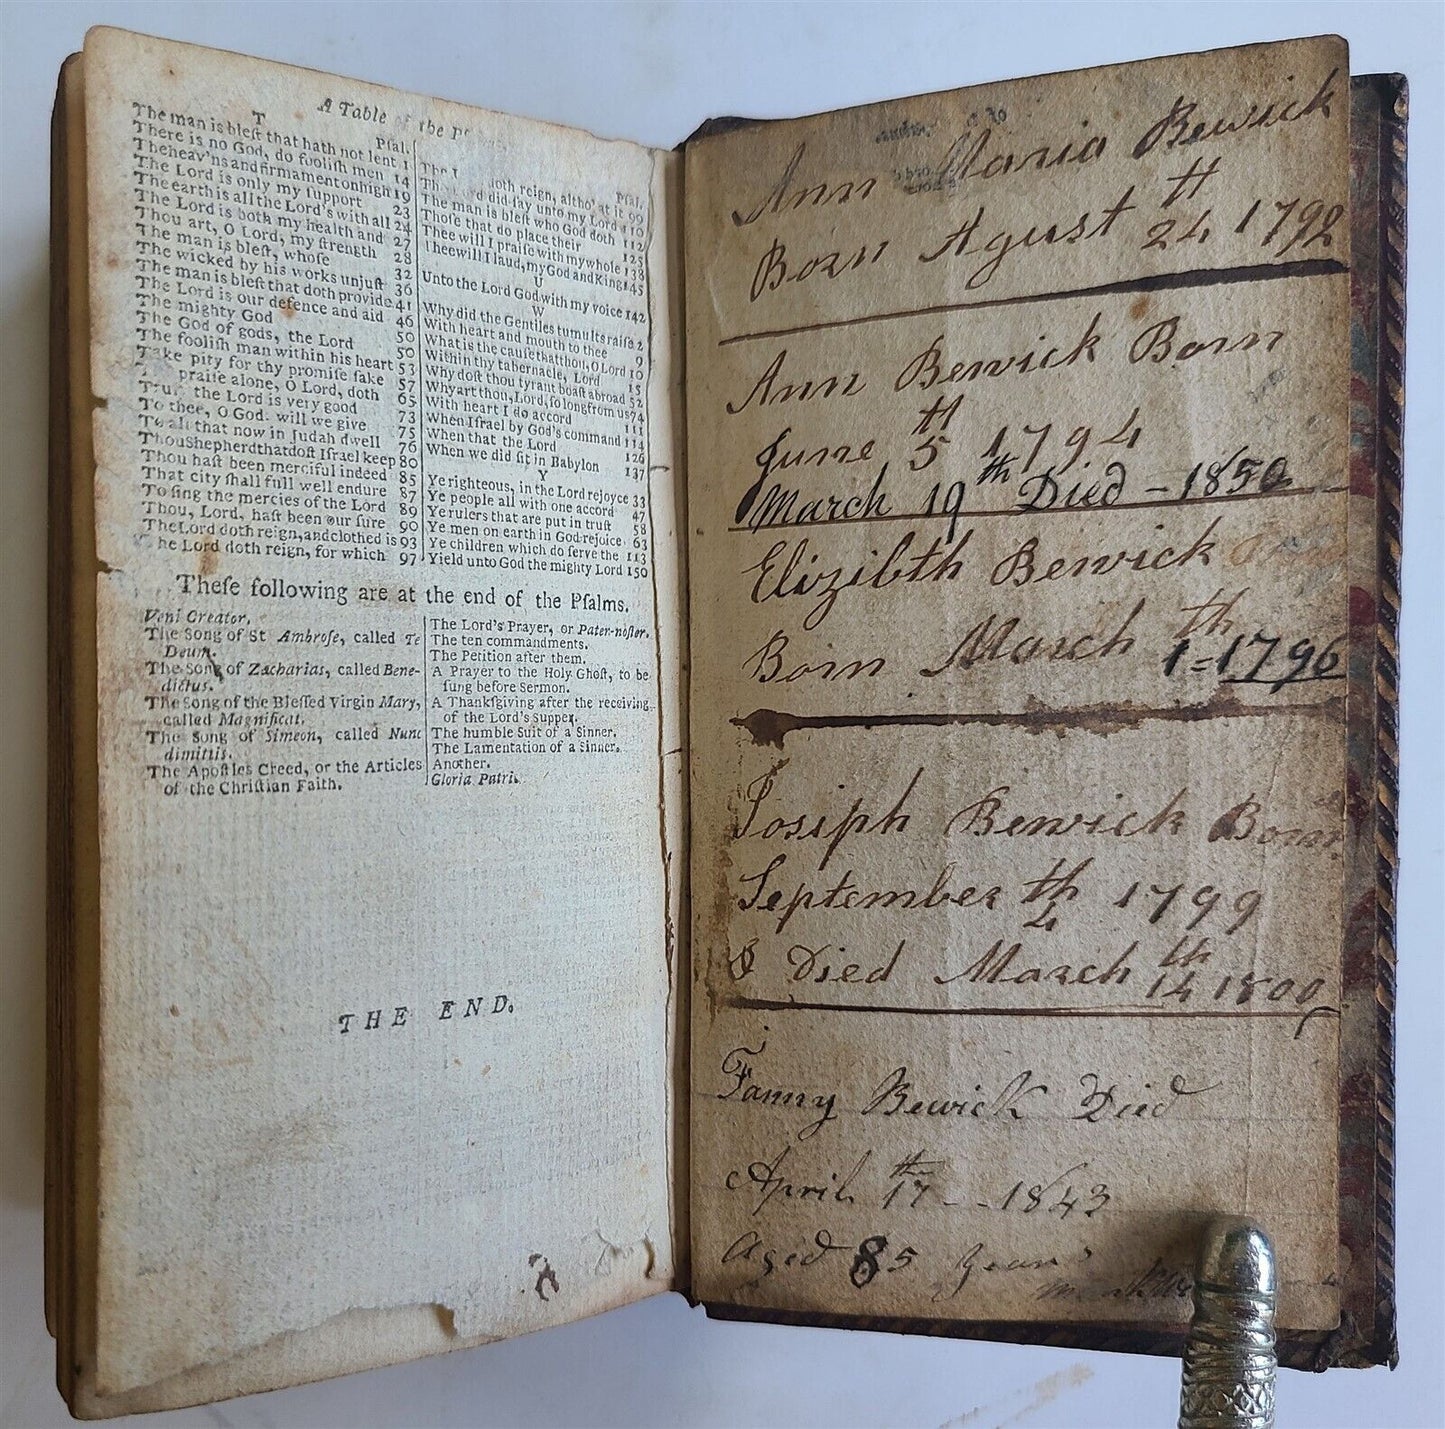 A Table of the
T
Psal.
The man is blest that hath not lent 1
There is no God, do foolish men 14
The heav'ns and firmament on high 19
The Lord is only my support 23
The earth is all the Lord's with all 24
The Lord is both my health and 27
Thou art, O Lord, my strength 28
The man is blest, whose 32
The wicked by his works unjust 36
The man is blest that doth provide 41
The Lord is our defence and aid 46
The mighty God 50
The God of gods, the Lord 50
The foolish man within his heart 53
Take pity for thy promise sake 57
praise alone, O Lord, doth 65
Tru the Lord is very good 73
To thee, O God. will we give 75
To all that now in Judah dwell 76
Thou Shepherd that dost Israel keep 80
Thou hast been merciful indeed 85
That city shall full well endure 87
To sing the mercies of the Lord 89
Thou, Lord, hast been our sure 90
The Lord doth reign, and clothed is 93
The Lord doth reign, for which 97
Psal.
The L doth reign, altho' at it 99
The Lord did say unto my Lord 110
The man is blest who God doth 112
Those that do place their 125
Thee will I praise with my whole 138
Thee will I laud, my God and King 145
U
Unto the Lord God with my voice 142
W
Why did the Gentiles tumults raise 2
With heart and mouth to thee 9
What is the cause that thou, O Lord 10
Within thy tabernacle, Lord 15
Why dost thou tyrant boast abroad 52
Why art thou, Lord, so long from us 74
With heart I do accord 111
When Israel by God's command 114
When that the Lord 126
When we did sit in Babylon 137
Y
Ye righteous, in the Lord rejoyce 33
Ye people all with one accord 47
Ye rulers that are put in trust 58
Ye men on earth in God rejoice 63
Ye children which do serve the 113
Yield unto God the mighty Lord 150
These following are at the end of the Psalms.
Veni Creator.
The Song of St Ambrose, called Te
Deum.
The Song of Zacharias, called Bene-
dictus.
The Song of the Blessed Virgin Mary,
called Magnificat.
The Song of Simeon, called Nunc
dimittis.
The Apostles Creed, or the Articles
of the Christian Faith.
The Lord's Prayer, or Pater-noster.
The ten commandments.
The Petition after them.
A Prayer to the Holy Ghost, to be
sung before Sermon.
A Thanksgiving after the receiving
of the Lord's Supper.
The humble Suit of a Sinner.
The Lamentation of a Sinner.
Another.
Gloria Patri.
THE END.
Ann Maria Bewick
Born Agust 24th 1792
Ann Bewick Born
June 5th 1794
March 19th Died - 1850
Elizibth Bewick
Born March th 1 = 1796
Josiph Bewick Born
September 4th 1799
& Died March 14th 1800
Fanny Bewick Died
April 17th - - 1843
Aged 85 Years